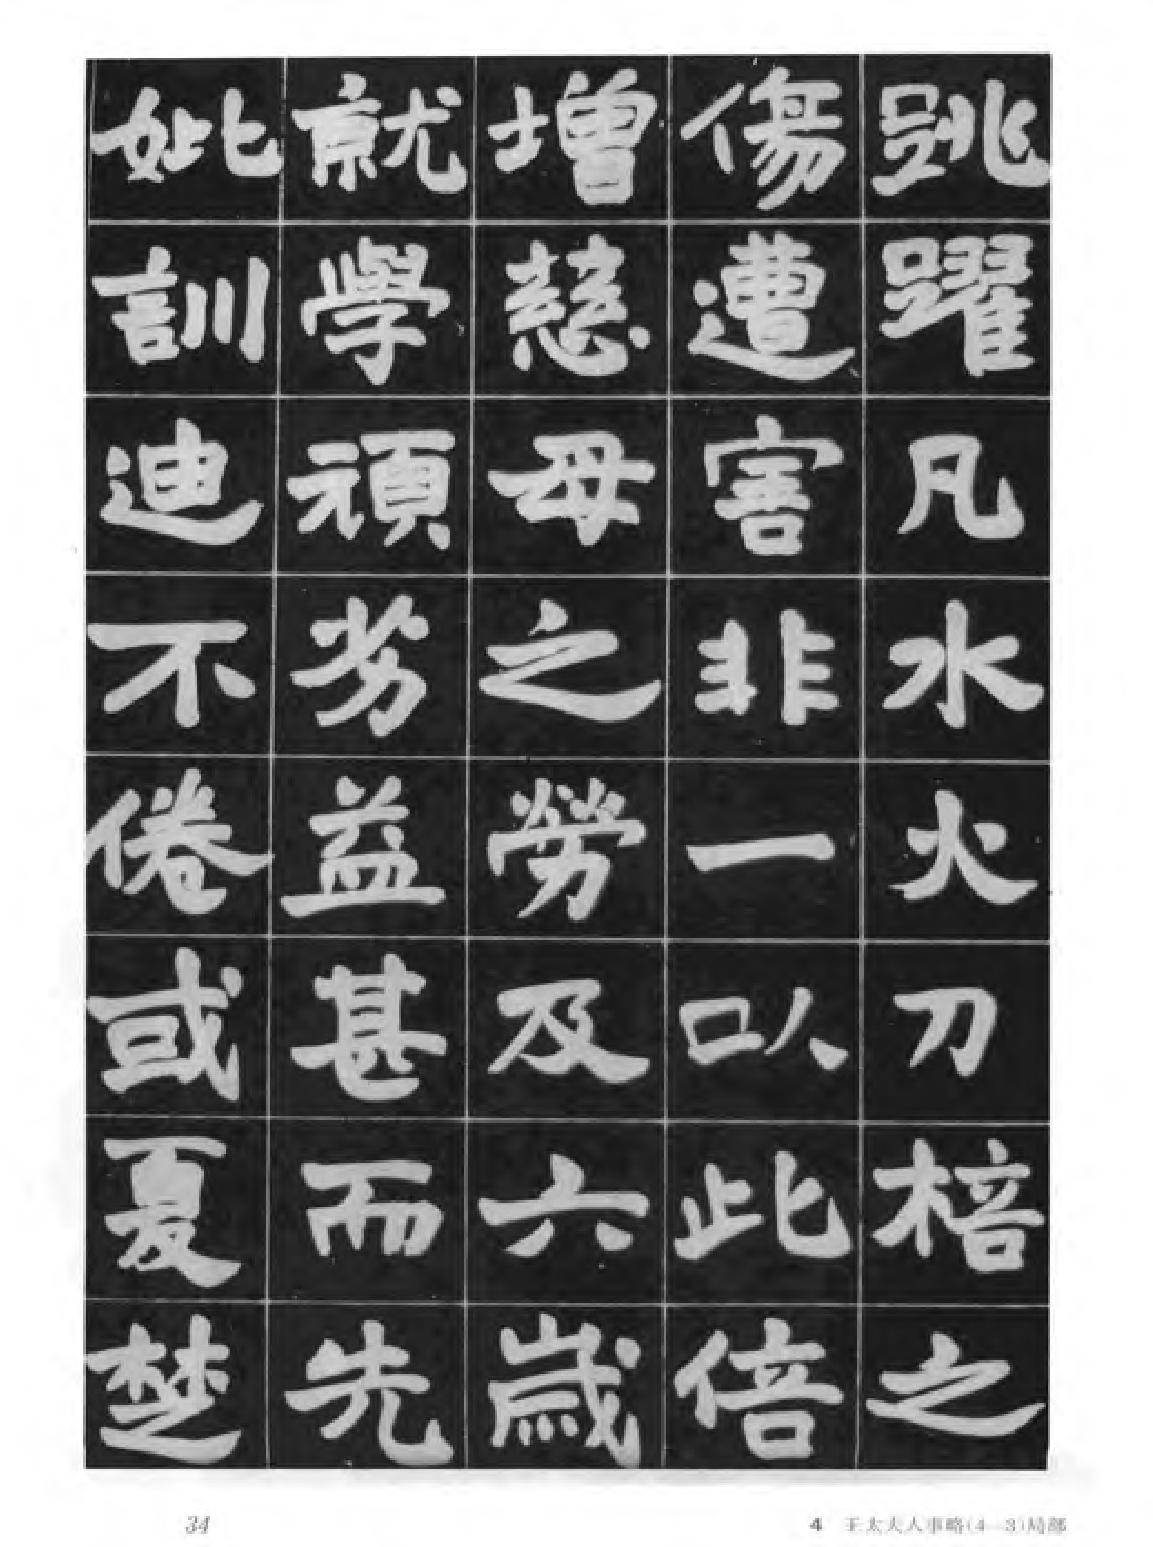 跳躍凡水火刀棓之
傷遭害非一以此倍
增慈母之勞及六歲
就學頑劣益甚而先
妣訓迪不倦或夏楚
34
4 王太夫人事略(4—3)局部